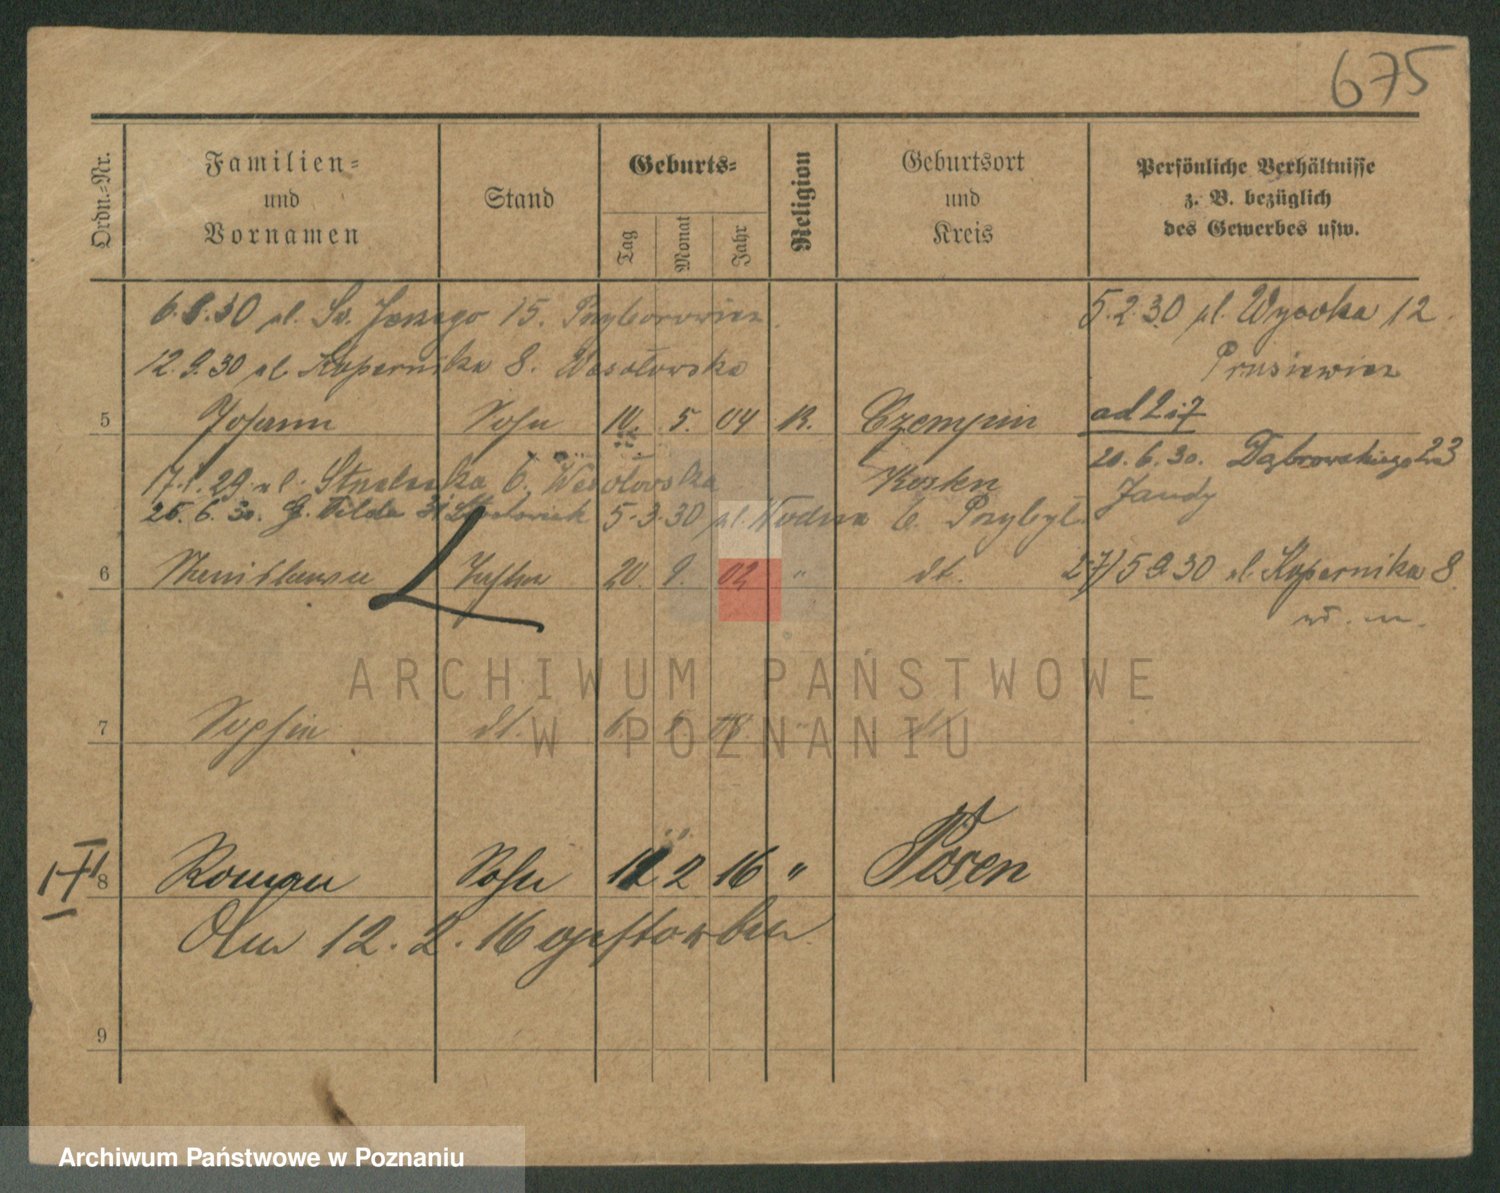 675
Ordn.-Nr.
Familien-
und
Vornamen
Stand
Geburts-
Tag
Monat
Jahr
Religion
Geburtsort
und
Kreis
Persönliche Verhältnisse
z. B. bezüglich
des Gewerbes usw.
6.8.30 pl. Św. Jerzego 15.
5.2.30 ul. Wysoka 12
12.9.30 ul. Kopernika 8. Wesołowska
Prusiewicz
5 Johann Sohn 10. 5. 04 R. Czempin ad 2 i 7
20.6.30. Dąbrowskiego 23
17.1.29 ul. Strzelecka 6. Wesołowska Kosten Jandy
25.6.30. G. Wilda 5.3.30 ul. Wodna 6. Przybył
6 Stanislawa Tochter 20 9. 02 " dt. 27/5 9.30 ul. Kopernika 8
7 Sophia dt. 6. dt.
8 Roman Sohn 12 2 16 " Posen
Am 12.2.16 gestorben
9
ARCHIWUM PAŃSTWOWE
W POZNANIU
Archiwum Państwowe w Poznaniu